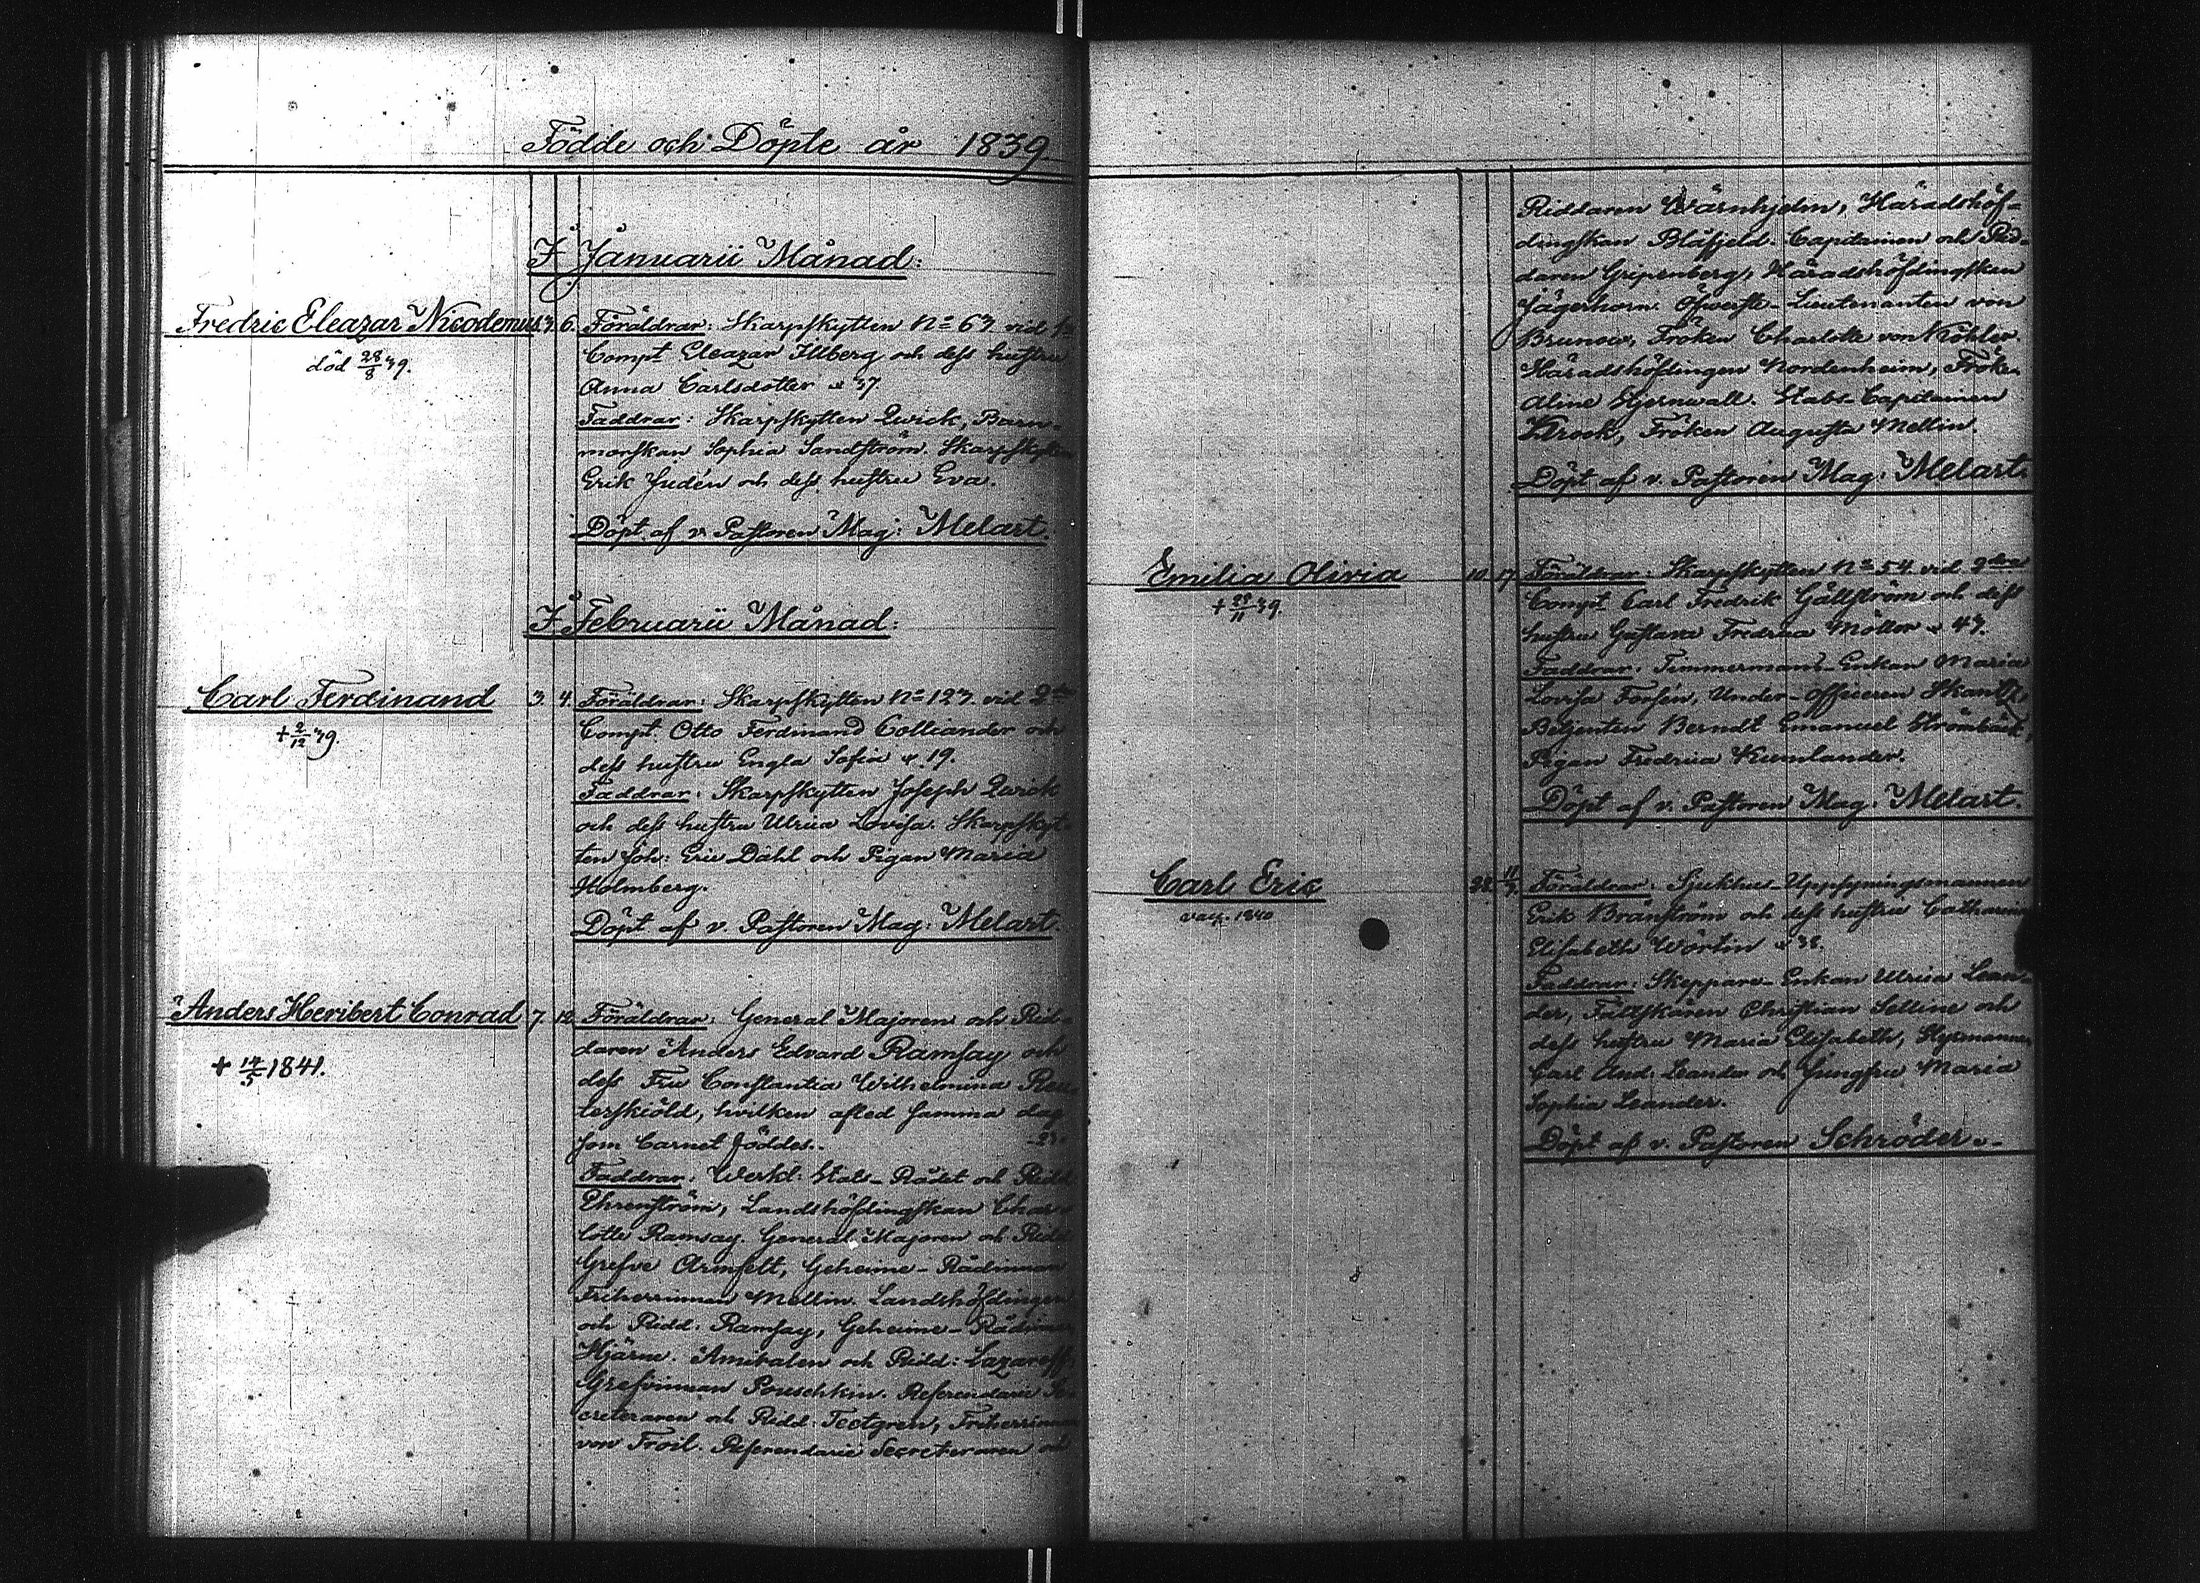 Födde och Döpte år 1839
I Januarii Månad:
Fredric Eleazar Nicodemus 3. 6. Föräldrar: Skarpskytten No 63 vid 1a
död 28/8 39.
Compt Eleazar Illberg och dess hustru
Anna Carlsdotter 37
Faddrar: Skarpskytten Qwick, Barn-
morskan Sophia Sandström. Skarpskytten
Erik Judén och dess hustru Eva.
Döpt af v. Pastoren Mag: Melart.
I Februarii Månad:
Carl Ferdinand 3. 4. Föräldrar: Skarpskytten No 123 vid 2dra
+ 2/12 39.
Compt Otto Ferdinand Colliander och
dess hustru Engla Sofia 19.
Faddrar: Skarpskytten Joseph Qwick
och dess hustru Ulrica Lovisa. Skarpskyt-
ten Joh: Eric Dahl och Pigan Maria
Holmberg.
Döpt af v. Pastoren Mag: Melart.
Anders Heribert Conrad 7 12 Föräldrar: General Majoren och Rid-
+ 14/5 1841.
daren Anders Edvard Ramsay och
dess Fru Constantia Wilhelmina Reu
terskiöld, hvilken afled samma dag
som barnet föddes. 23.
Faddrar: Werkl: Stats-Rådet och Ridd
Ehrenström, Landshöfdingskan Char
lotte Ramsay. General Majoren och Ridd
Grefve Armfelt, Geheime-Rådinnan
Friherrinnan Mellin. Landshöfdingen
och Ridd: Ramsay, Geheime-Rådinnan
Hjärne. Amiralen och Ridd: Lazareff,
Grefvinnan Pouschkin. Referendarie Se
creteraren och Ridd: Teetgren, Friherrinnan
von Troil. Referendarie Secreteraren och
Riddaren Wärnhjelm, Häradshöf-
dingskan Blåfjeld. Capitainen och Rid-
daren Gripenberg, Häradshöfdingskan
Jägerhorn. Öfverste-Lieutenanten von
Brunow, Fröken Charlotte von Köhler.
Häradshöfdingen Nordenheim, Fröken
Aline Stjernvall. Stabs-Capitainen
Krook, Fröken Augusta Mellin.
Döpt af v. Pastoren Mag: Melart.
Emilia Olivia 10. 17. Föräldrar: Skarpskytten No 54 vid 2dra
+ 28/11 39.
Compt Carl Fredrik Gällström och dess
hustru Gustava Fredrica Möller 43.
Faddrar: Timmermans-Enkan Maria
Lovisa Forsén, Under-officeren Skantz
Betjenten Berndt Emanuel Strömbäck,
Pigan Fredrica Kumlander.
Döpt af v. Pastoren Mag: Melart.
Carl Eric 28. 11/3. Föräldrar: Sjukhus-Uppsyningsmannen
vacc. 1840
Erik Bränström och dess hustru Catharina
Elisabeth Wörtin 38.
Faddrar: Skeppare-Enkan Ulrica Lean-
der, Fältskären Christian Selline och
dess hustru Maria Elisabeth, Styrmannen
Carl And. Leander och Jungfru Maria
Sophia Leander.
Döpt af v. Pastoren Schröder